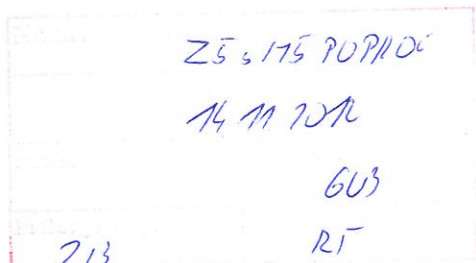 ZŠ s MŠ POPROČ
14 11 2012
603
RT
213